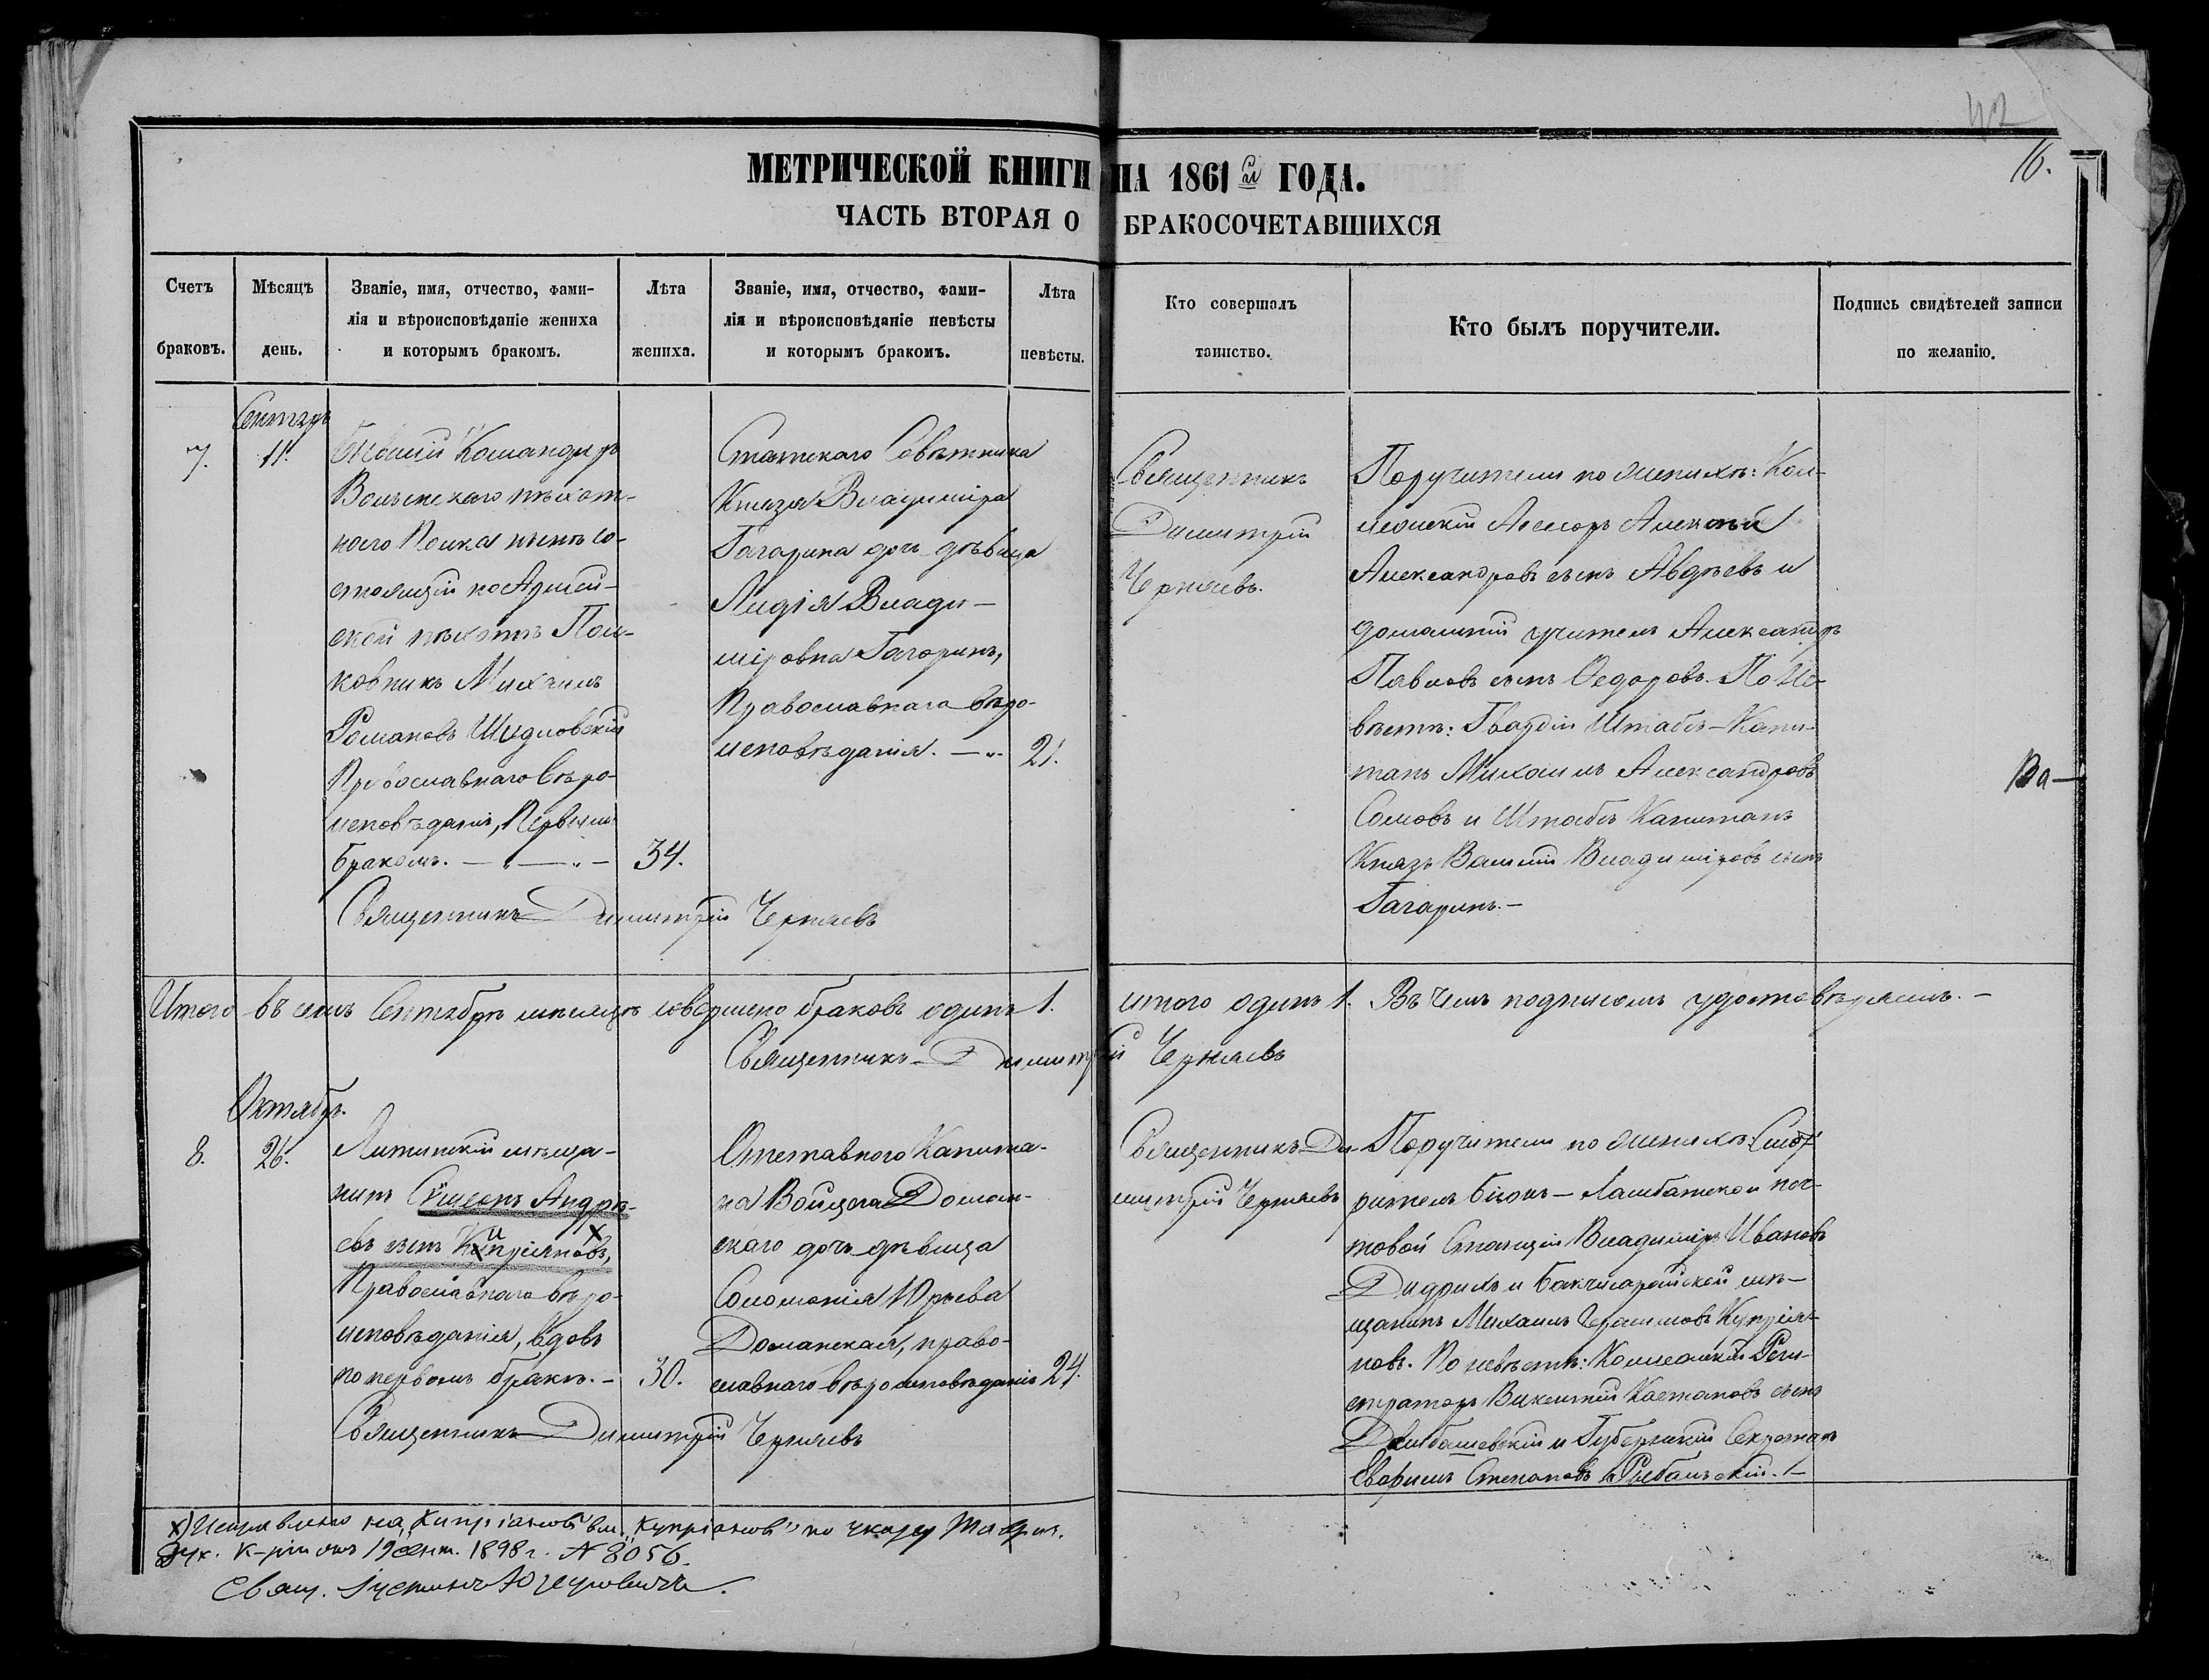 42
16.
МЕТРИЧЕСКОЙ КНИГИ НА 1861 й ГОДА.
ЧАСТЬ ВТОРАЯ О БРАКОСОЧЕТАВШИХСЯ
Счетъ браковъ.
Мѣсяцъ день.
Званіе, имя, отчество, фами-
лія и вѣроисповѣданіе жениха
и которымъ бракомъ.
Лѣта жениха.
Званіе, имя, отчество, фами-
лія и вѣроисповѣданіе невѣсты
и которымъ бракомъ.
Лѣта невѣсты.
Кто совершалъ таинство.
Кто былъ поручители.
Подпись свидѣтелей записи
по желанію.
7.
Сентябрь
11.
Бывшій Командиръ
Волынскаго пѣхот-
наго Полка нынѣ со-
стоящій по Армей-
ской пѣхотѣ Пол-
ковникъ Михаилъ
Романовъ Шидловскій
Православнаго Вѣро-
исповѣданія, Первымъ
бракомъ.
34.
Статскаго Совѣтника
Князя Владиміра
Гагарина дочь дѣвица
Лидія Влади-
міровна Гагарина,
Православнаго вѣро-
исповѣданія.
21.
Священникъ
Димитрій
Черняевъ.
Поручители по женихѣ: Кол-
лежскій Ассесоръ Алексѣй
Александровъ сынъ Авдѣевъ и
домашній учитель Александръ
Павловъ сынъ Ѳедоровъ. По Не-
вѣстѣ: Гвардіи Штабсъ-Капи-
танъ Михаилъ Александровъ
Сомовъ и Штабсъ Капитанъ
Князь Василій Владиміровъ сынъ
Гагаринъ.
Ва-
Священникъ Димитрій Черняевъ
Итого въ семъ Сентябрѣ мѣсяцѣ совершено браковъ одинъ 1. итого одинъ 1. Въ чемъ подписомъ удостовѣряемъ.
Священникъ Димитрій Черняевъ
8.
Октябрь.
26.
Литинскій мѣща-
нинъ Сѵмеонъ Андрѣ-
евъ сынъ Кипріановъ,
Православнаго вѣро-
исповѣданія, вдовъ
по первомъ бракѣ.
30.
Отставного Капита-
на Войцеха Доман-
скаго дочь дѣвица
Соломонія Юрьева
Доманская, право-
славнаго вѣроисповѣданія
24.
Священникъ Ди-
митрій Черняевъ
Поручители по женихѣ: Смот-
ритель Біюкъ-Ламбатской поч-
товой Станціи Владиміръ Ивановъ
Дидрихъ и Бакчисарайской мѣ-
щанинъ Михаилъ Герасимовъ Купрія-
новъ. По невѣстѣ: Коллежскій Реги-
страторъ Викентій сынъ
и Губернскій Секретарь
Степановъ Рыбальскій.
Священникъ Димитрій Черняевъ
х) Исправлено на „Кипріановъ" вм. „Купріановъ" по указу Таврич.
Дух. К-ріи отъ 19 сент. 1898 г. № 8056.
Свящ. Іустинъ